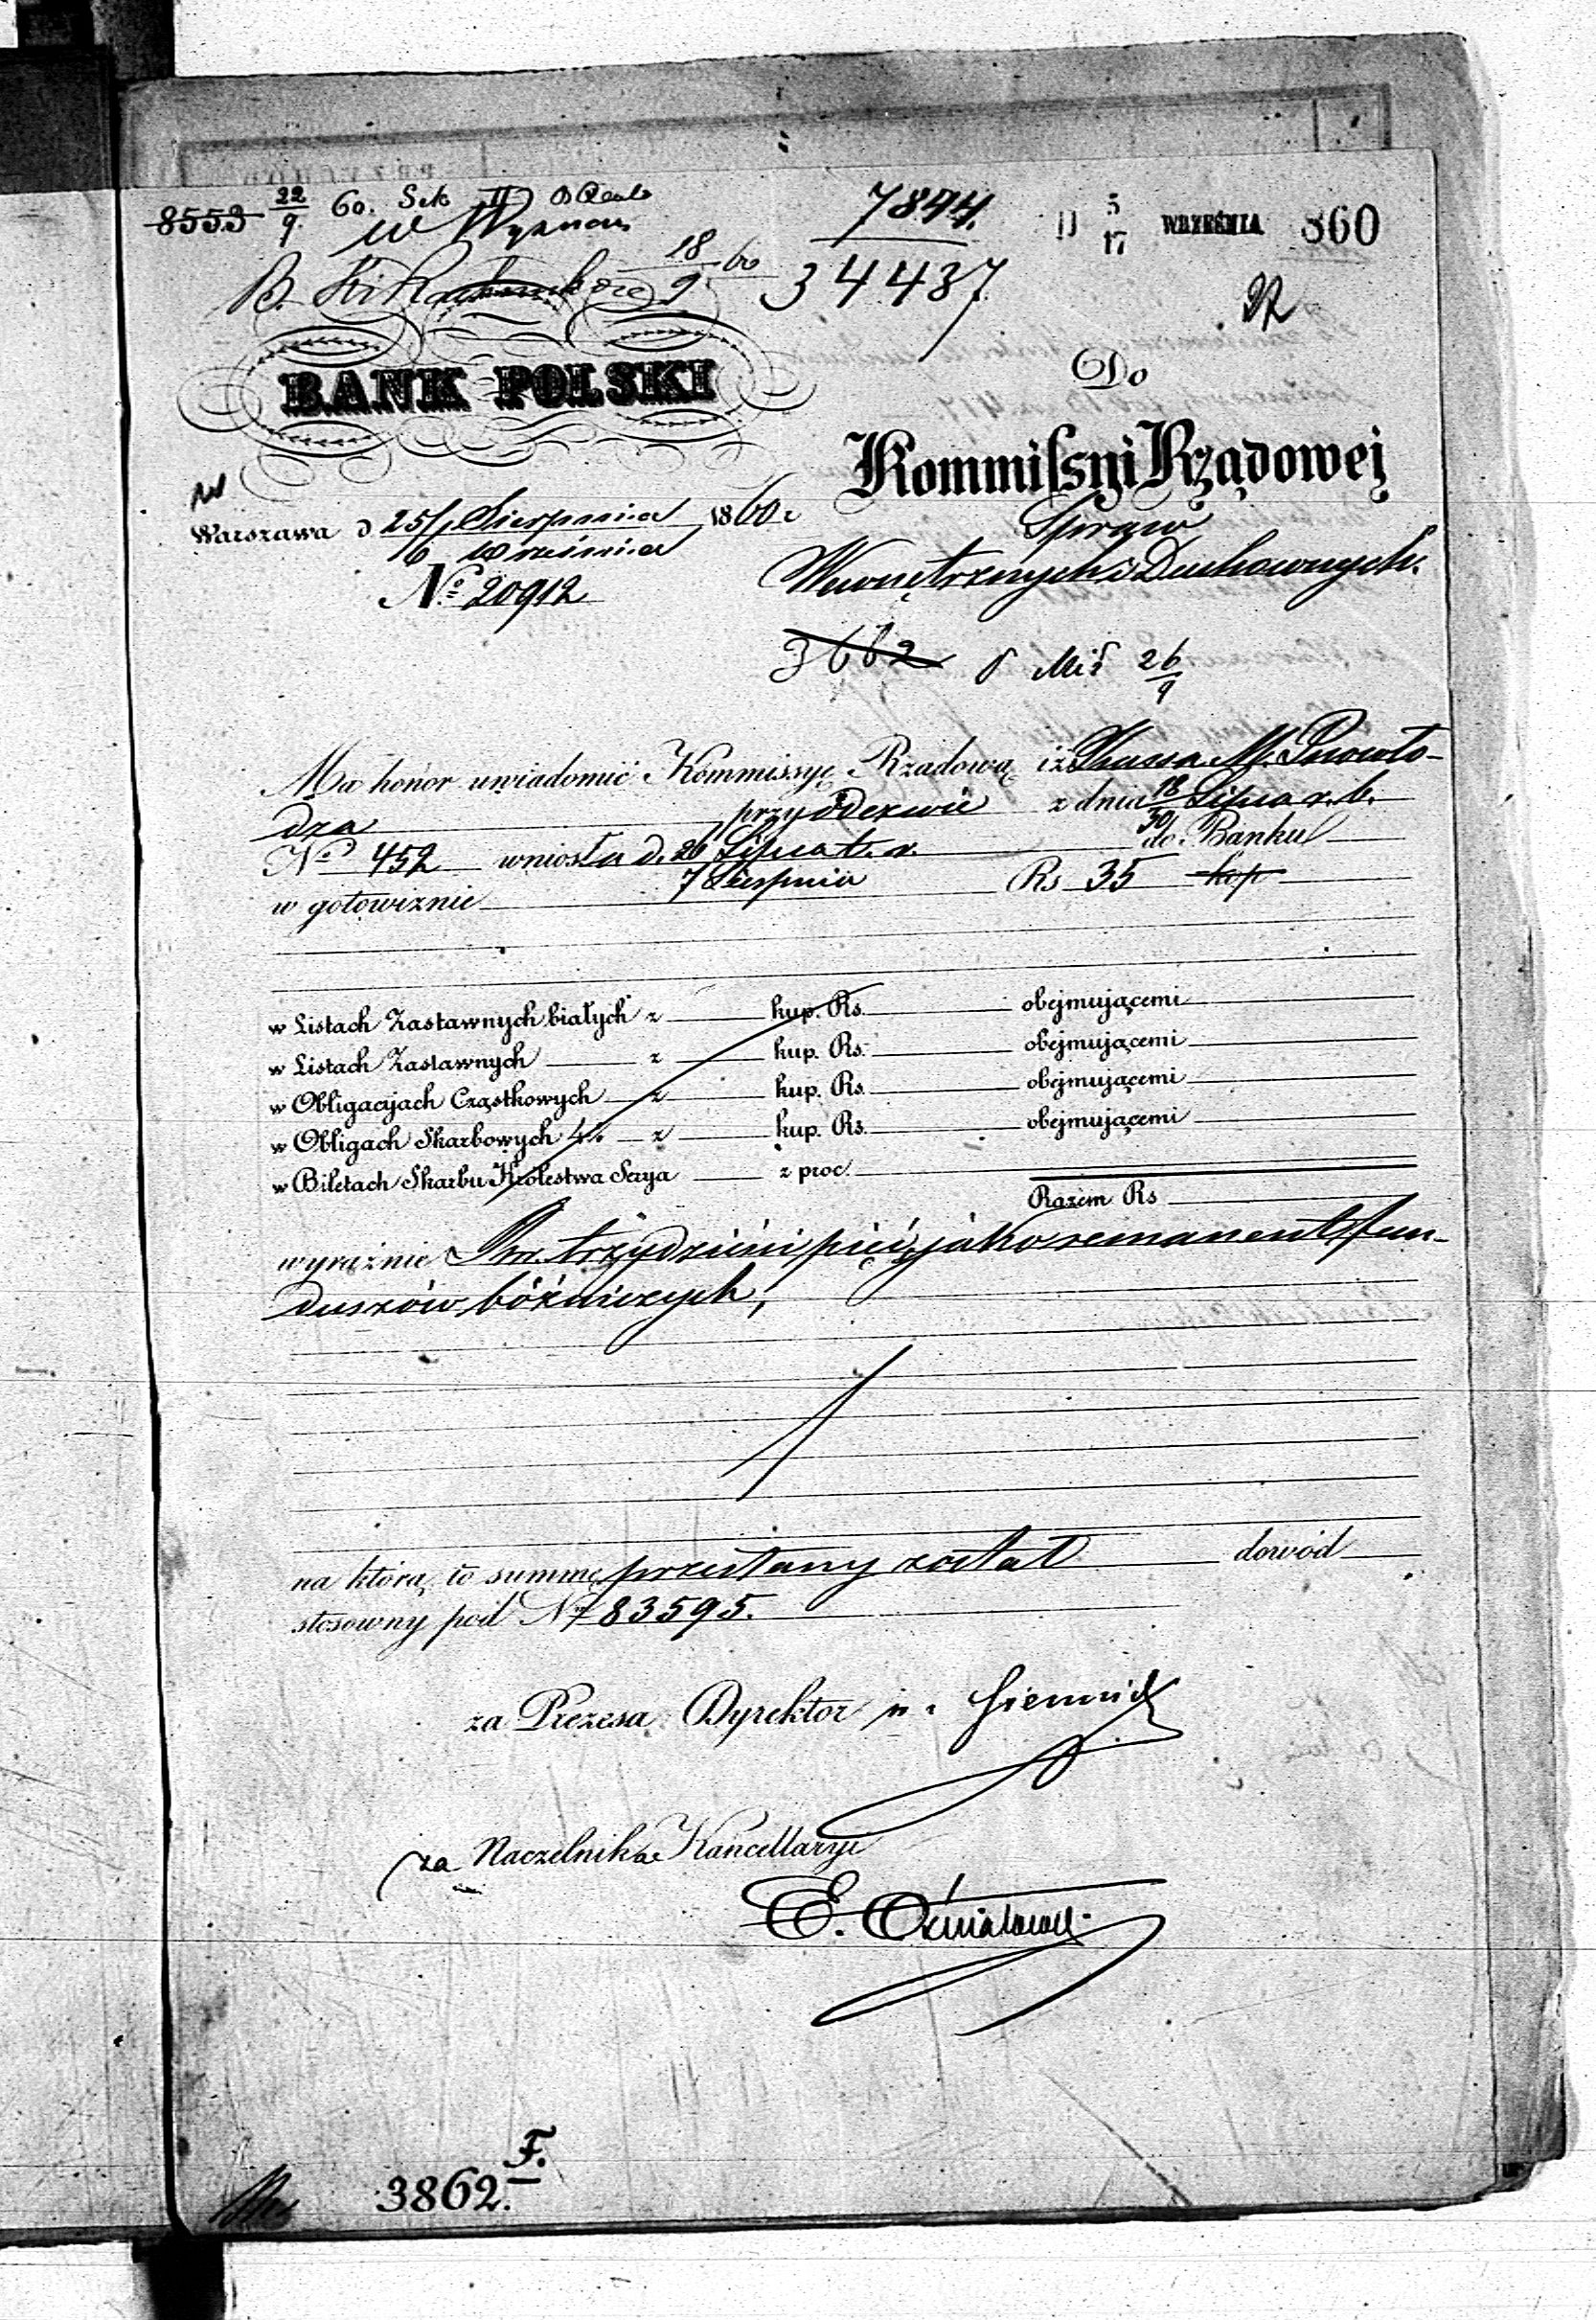 8553 22/9 60. Sek II
7844.
5/17 WRZEŚNIA 860
W Wyznań
18/9 60
34437
BANK POLSKI
Do
Kommissyi Rządowej
Spraw
Wewnętrznych i Duchownych.
Warszawa d 25/6 Sierpnia/Września 1860 r
No 20912
3662
26/9
Ma honor uwiadomić Kommissyę Rządową iż Kassa M. Inowło-
dza przy odezwie z dnia 18/30 Lipca r. b.
No 452 wniosła d. 26 Lipca t. r. do Banku
7 Sierpnia
w gotowiznie Rs 35 kop
w Listach Zastawnych białych z kup. Rs. obejmującemi
w Listach Zastawnych z kup. Rs. obejmującemi
w Obligacyjach Cząstkowych z kup. Rs. obejmującemi
w Obligach Skarbowych 4% z kup. Rs. obejmującemi
w Biletach Skarbu Królestwa Serya z proc.
Razem Rs
wyraźnie Rsr. trzydzieści pięć, jako remanent fun-
duszów bóżniczych,
na którą to summę przesłany został dowód
stosowny pod No 83595.
za Prezesa Dyrektor
za Naczelnika Kancellaryi
E.
3862. F.